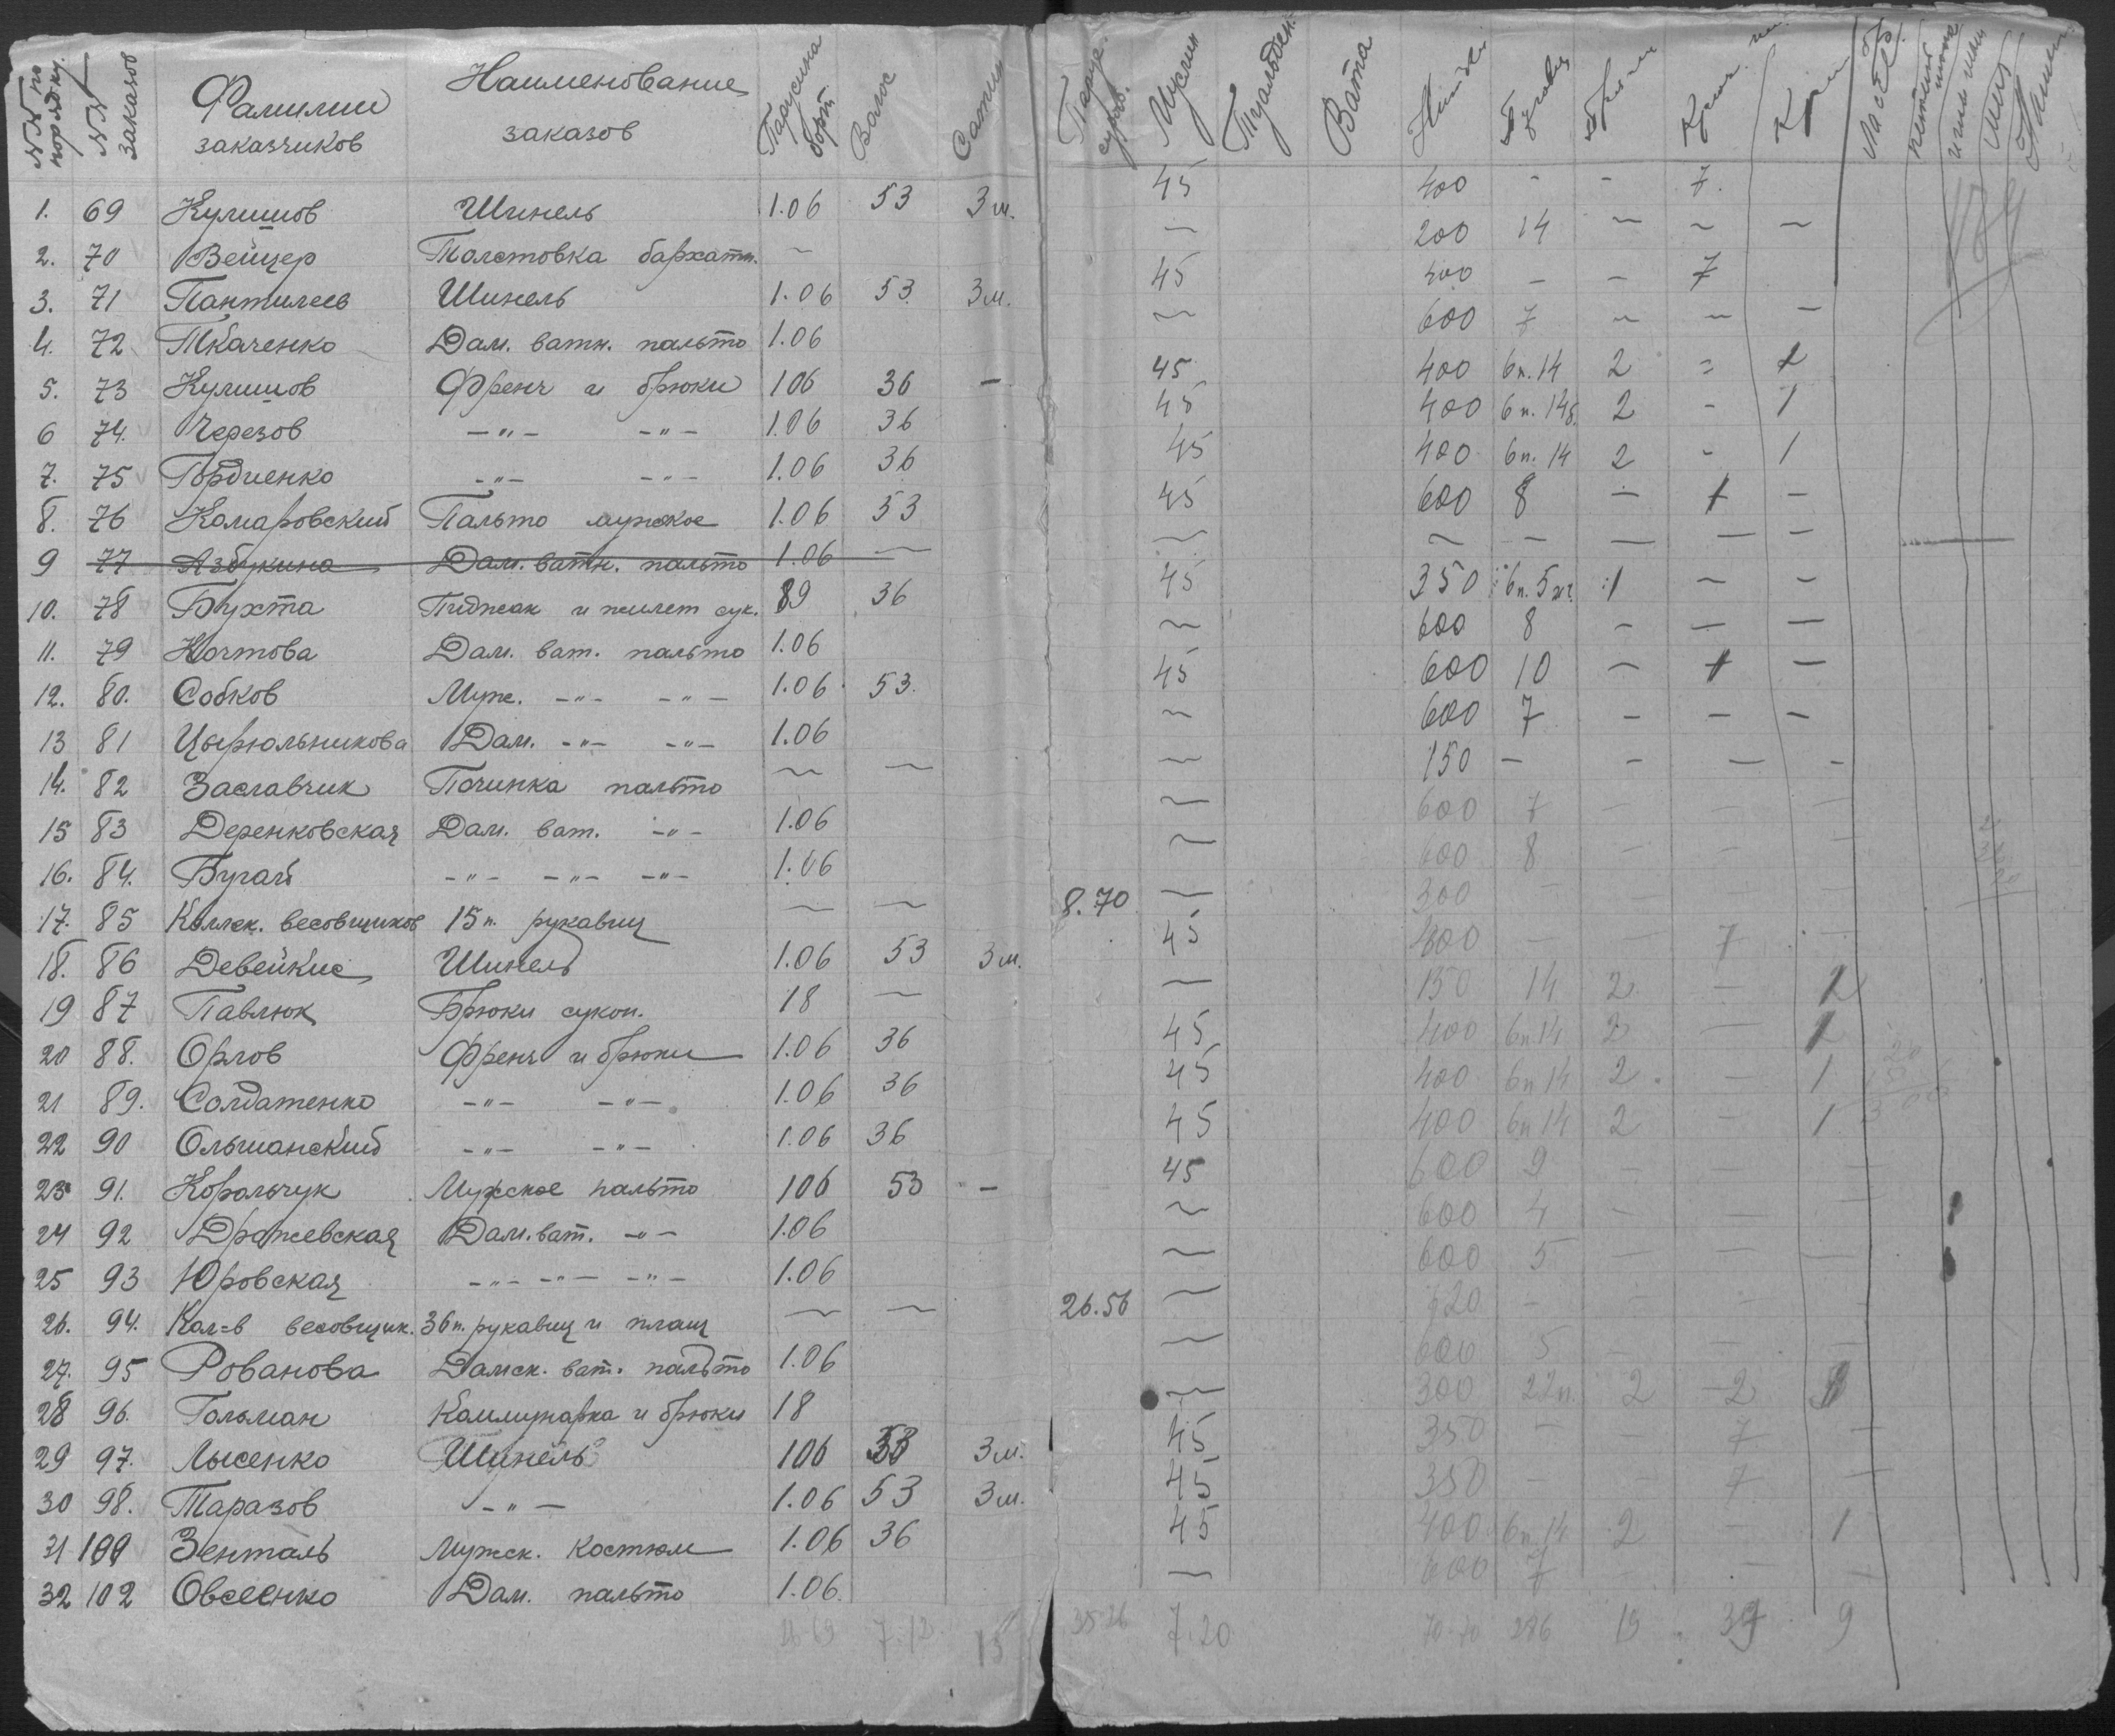 NN по порядку. NN заказов Фамилии заказчиков Наименование заказов Парусина борт. Волос Сатин Муслин Вата
1. 69 Кулишов Шинель 1.06 53 3 м. 45 400 - - 7.
2. 70 Вейцер Толстовка бархатн. ~ ~ 200 14 ~ ~ ~
3. 71 Пантилеев Шинель 1.06 53. 3 м. 45 400 - - 7
4. 72 Ткаченко Дам. ватн. пальто 1.06 ~ 600 7 ~ ~ -
5. 73 Кулишов Френч и брюки 106 36 - 45 400 6п.14 2 = 1
6 74. Черезов -"- -"- 1.06 36 45 400 6п.14б. 2 - 1
7. 75 Гордиенко -"- -"- 1.06 36 45 400 6п.14 2 - 1
8. 76 Комаровский Пальто мужское 1.06 53 45 600 8 - 1 -
9 77 Азбукина Дам. ватн. пальто 1.06 ~ ~ ~ - - - -
10. 78 Бухта Пиджак и жилет сук. 89 36 45 350 6п. 5 1 ~ ~
11. 79 Кочтова Дам. ват. пальто 1.06 ~ 600 8 - - -
12. 80. Собков Муж. -"- -"- 1.06 53. 45 600 10 - 1 -
13 81 Цырюльникова Дам. -"- -"- 1.06 ~ 600 7 - - -
14. 82 Заславчик Починка пальто ~ ~ ~ 150 - - - -
15 83 Деренковская Дам. ват. -"- 1.06 ~ 600 7 - - -
16. 84. Бугай -"- -"- -"- 1.06 ~ 600 8 - - -
17. 85 Коллек. весовщиков 15 п. рукавиц ~ ~ 8.70 ~ 300 - - -
18. 86 Девейкис Шинель 1.06 53 3 м. 45 400 - - 7 -
19 87 Павлюк Брюки сукон. 18 ~ ~ 150 14 2 - 1
20 88. Орлов Френч и брюки 1.06 36 45 400 6п14 2 - 1
21 89. Солдатенко -"- -"- 1.06 36 45 400 6п14 2 - 1
22 90 Ольшанский -"- -"- 1.06 36 45 400 6п14 2 - 1
23 91. Корольчук Мужское пальто 106 53 - 45 600 9
24 92 Дражевская Дам. ват. -"- 1.06 ~ 600 4 - - -
25 93 Юровская -"- -"- -"- 1.06 ~ 600 5 - - -
26. 94. Кол-в весовщик. 36 п. рукавиц и плащ ~ ~ 26.56 ~ - - - -
27. 95 Рованова Дамск. ват. пальто 1.06 ~ 600 5 - - -
28 96. Гольман Коммунарка и брюки 18 ~ 300 22п. 2 -2
29 97. Лысенко Шинель 106 53 3 м. 45 350 - 7 -
30 98. Таразов -"- 1.06 53 3 м. 45 350 - - 7 -
31 100 Зенталь Мужск. костюм 1.06 36 45 400 6п.14 2 - 1
32 102 Овсеенко Дам. пальто 1.06. ~ 600 7 - - -
7.12 15 35 26 7.20 70.70 286 19 39 9